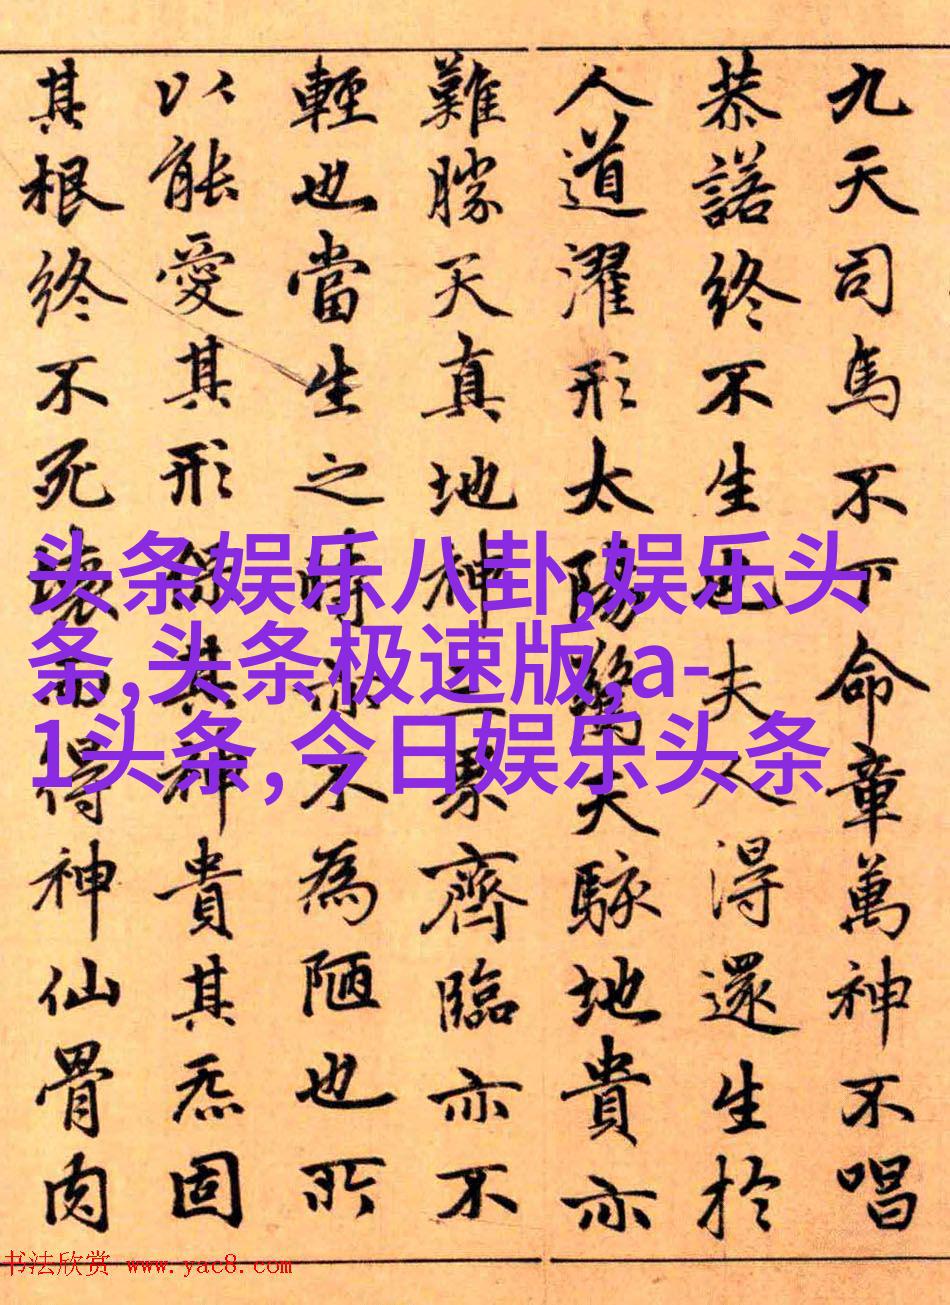 九天司馬不下命章萬神不唱
恭諾終不生也夫人得還生於
人道濯形太陽驚天駭地貴亦
難勝天真地神三界齊臨亦不
輕也當生之時亦不為陋也所
以能愛其形保其神貴其炁固
其根終不死壞而得神仙骨肉
头条娱乐八卦,娱乐头
条,头条极速版,a-
1头条,今日娱乐头条
书法欣赏 www.yac8.com